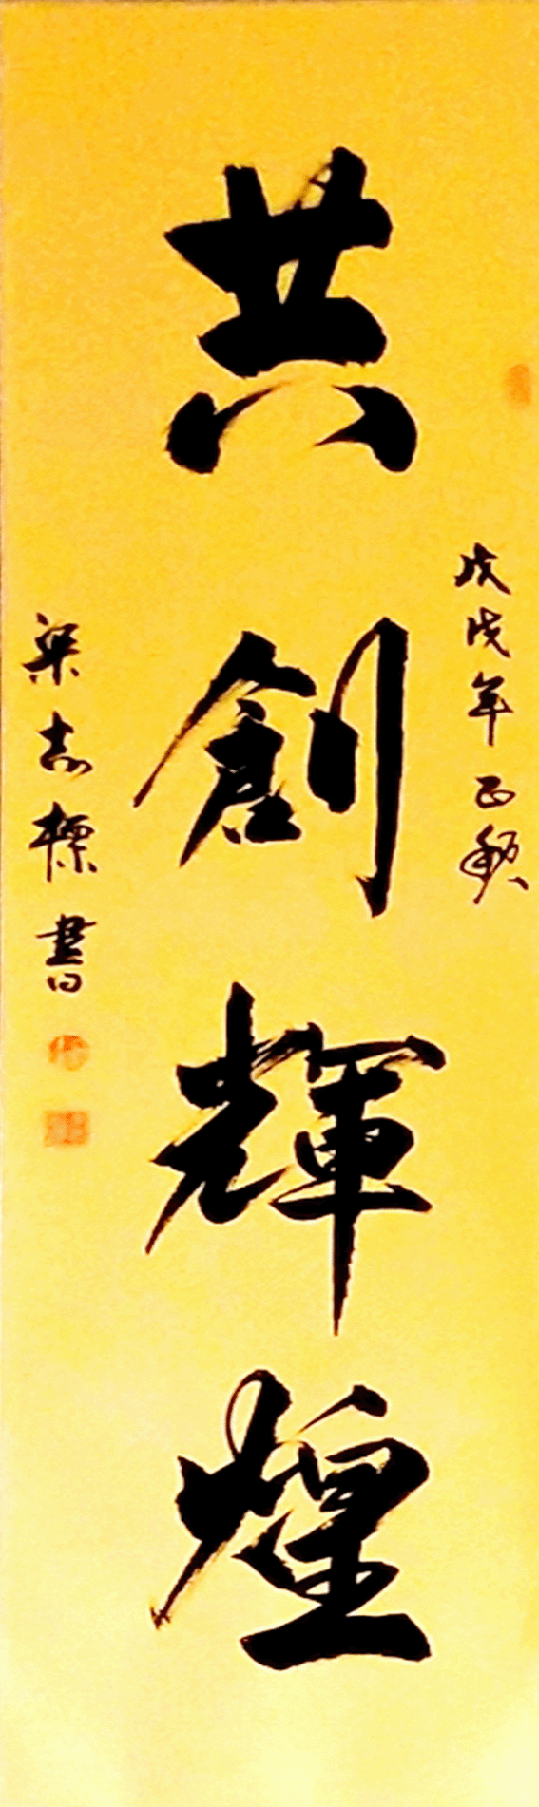 戊戌年正秋
共創輝煌
梁志標書